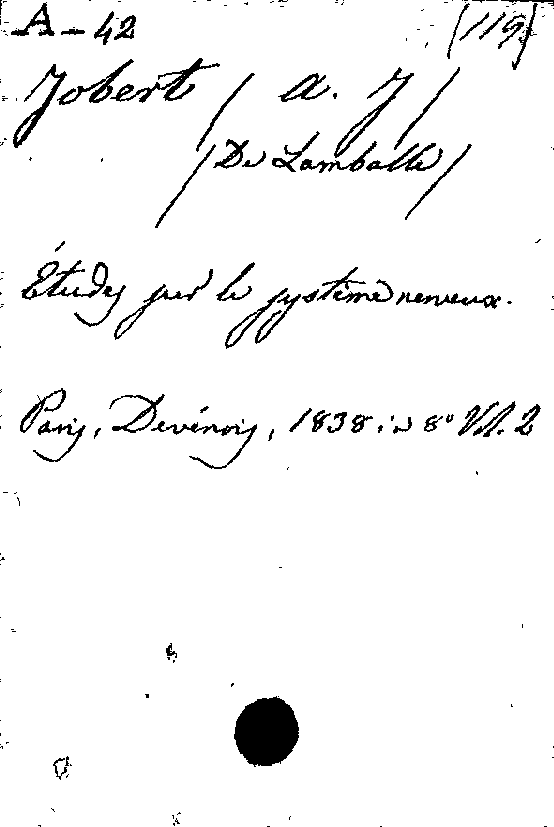 A-42 (119)
Jobert / A. J /
/ De Lamballe /
Études sur le système nerveux.
Paris, Devénois, 1838 in 8º Vol. 2